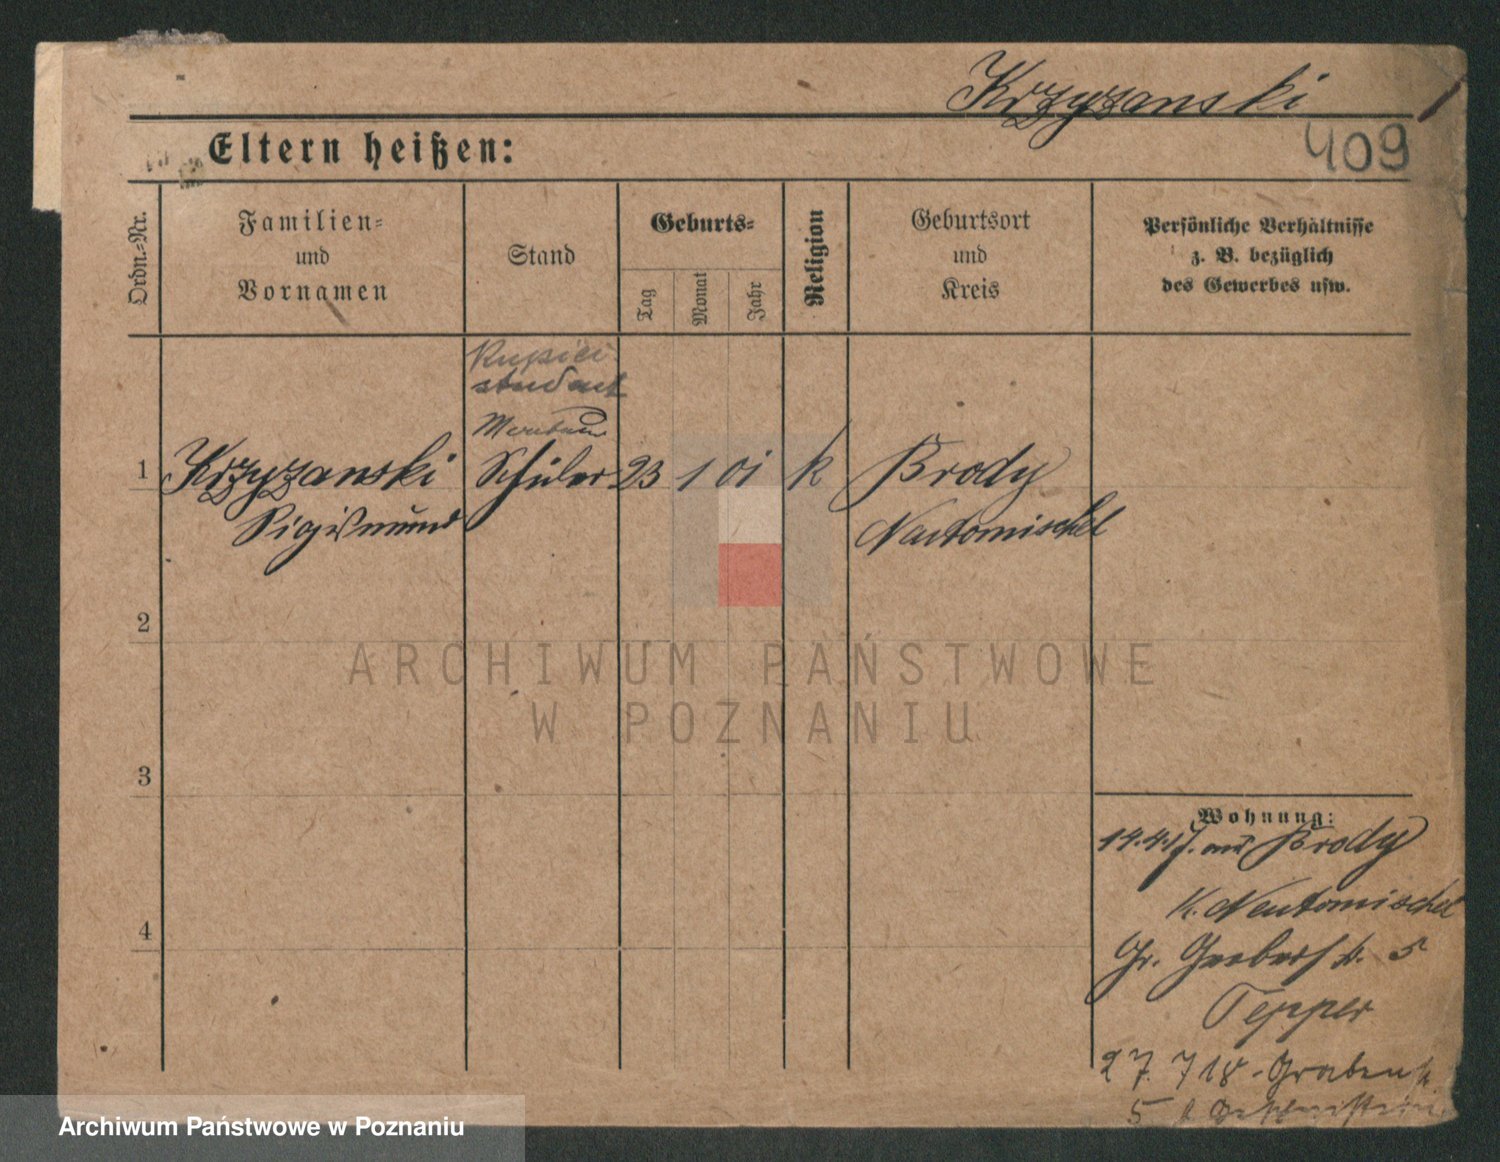 Krzyzanski
409
Eltern heißen:
Ordn.-Nr.
Familien-
und
Vornamen
Stand
Geburts-
Tag
Monat
Jahr
Religion
Geburtsort
und
Kreis
Persönliche Verhältnisse
z. B. bezüglich
des Gewerbes usw.
1
Krzyzanski
Sigismund
Schüler
23 1 01 k
Brody
Neutomischel
2
3
4
Wohnung:
14.4.17. aus Brody
K. Neutomischel
Gr. 5
Tepper
27 7 18
5
ARCHIWUM PAŃSTWOWE
W POZNANIU
Archiwum Państwowe w Poznaniu